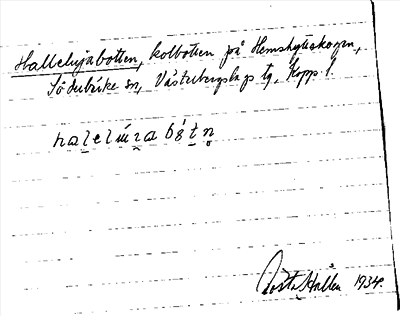 Hallelujabotten, kolbotten på Hemshytteskogen,
Söderbärke sn, Västerbergsla ps tg, Kopp. l.
halelúɪabótn̥
Gösta Hallén 1934.